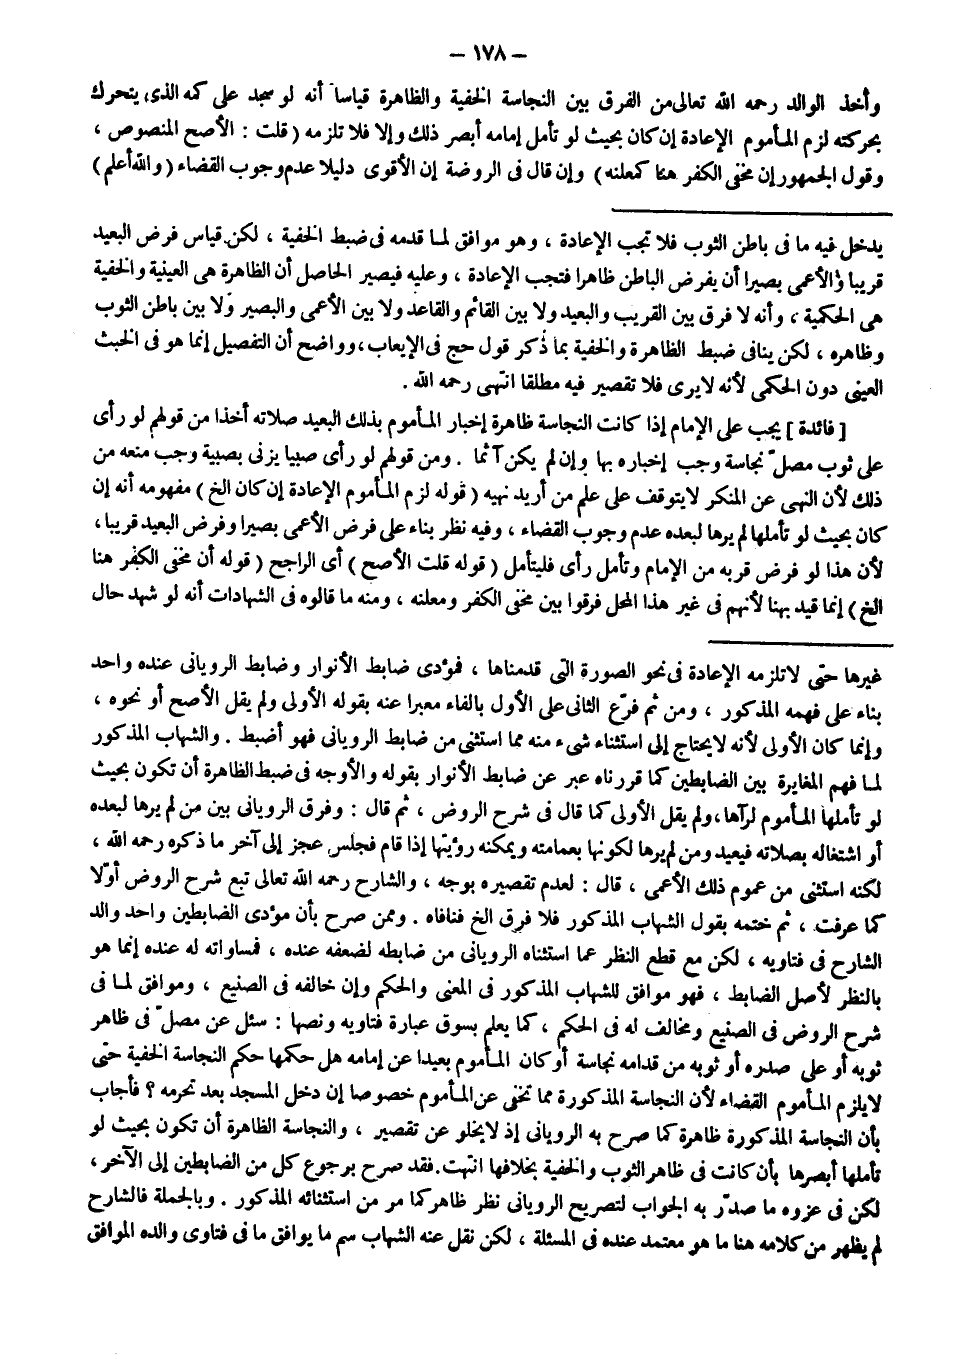 - ١٧٨ -
وأخذ الوالد رحمه الله تعالى من الفرق بين النجاسة الخفية والظاهرة قياسا أنه لو سجد على كمه الذى يتحرك
بحركته لزم المأموم الإعادة إن كان بحيث لو تأمل إمامه أبصر ذلك وإلا فلا تلزمه ( قلت : الأصح المنصوص ،
وقول الجمهور إن مخفى الكفر هنا كمعلنه ) وإن قال فى الروضة إن الأقوى دليلا عدم وجوب القضاء ( والله أعلم )
يدخل فيه ما فى باطن الثوب فلا تجب الإعادة ، وهو موافق لما قدمه فى ضبط الخفية ، لكن قياس فرض البعيد
قريبا والأعمى بصيرا أن يفرض الباطن ظاهرا فتجب الإعادة ، وعليه فيصير الحاصل أن الظاهرة هى العينية والخفية
هى الحكمية ، وأنه لا فرق بين القريب والبعيد ولا بين القائم والقاعد ولا بين الأعمى والبصير ولا بين باطن الثوب
وظاهره ، لكن ينافى ضبط الظاهرة والخفية بما ذكر قول حج فى الإيعاب ، وواضح أن التفصيل إنما هو فى الخبث
العينى دون الحكمى لأنه لا يرى فلا تقصير فيه مطلقا انتهى رحمه الله .
[ فائدة ] يجب على الإمام إذا كانت النجاسة ظاهرة إخبار المأموم بذلك البعيد صلاته أخذا من قولهم لو رأى
على ثوب مصلّ نجاسة وجب إخباره بها وإن لم يكن آثما . ومن قولهم لو رأى صبيا يزنى بصبية وجب منعه من
ذلك لأن النهى عن المنكر لا يتوقف على علم من أريد نهيه ( قوله لزم المأموم الإعادة إن كان الخ ) مفهومه أنه إن
كان بحيث لو تأملها لم يرها لبعده عدم وجوب القضاء ، وفيه نظر بناء على فرض الأعمى بصيرا وفرض البعيد قريبا ،
لأن هذا لو فرض قربه من الإمام وتأمل رأى فليتأمل ( قوله قلت الأصح ) أى الراجح ( قوله أن مخفى الكفر هنا
الخ ) إنما قيد بهنا لأنهم فى غير هذا المحل فرقوا بين مخفى الكفر ومعلنه ، ومنه ما قالوه فى الشهادات أنه لو شهد حال
غيرها حتى لا تلزمه الإعادة فى نحو الصورة التى قدمناها ، فمؤدى ضابط الأنوار وضابط الرويانى عنده واحد
بناء على فهمه المذكور ، ومن ثم فرّع الثانى على الأول بالفاء معبرا عنه بقوله الأولى ولم يقل الأصح أو نحوه ،
وإنما كان الأولى لأنه لا يحتاج إلى استثناء شىء منه مما استثنى من ضابط الرويانى فهو أضبط . والشهاب المذكور
لما فهم المغايرة بين الضابطين كما قررناه عبر عن ضابط الأنوار بقوله والأوجه فى ضبط الظاهرة أن تكون بحيث
لو تأملها المأموم لرآها ، ولم يقل الأولى كما قال فى شرح الروض ، ثم قال : وفرق الرويانى بين من لم يرها لبعده
أو اشتغاله بصلاته فيعيد ومن لم يرها لكونها بعمامته ويمكنه رؤيتها إذا قام فجلس عجز إلى آخر ما ذكره رحمه الله ،
لكنه استثنى من عموم ذلك الأعمى ، قال : لعدم تقصيره بوجه ، والشارح رحمه الله تعالى تبع شرح الروض أوّلا
كما عرفت ، ثم ختمه بقول الشهاب المذكور فلا فرق الخ فنافاه . وممن صرح بأن مؤدى الضابطين واحد والد
الشارح فى فتاويه ، لكن مع قطع النظر عما استثناه الرويانى من ضابطه لضعفه عنده ، فمساواته له عنده إنما هو
بالنظر لأصل الضابط ، فهو موافق للشهاب المذكور فى المعنى والحكم وإن خالفه فى الصنيع ، وموافق لما فى
شرح الروض فى الصنيع ومخالف له فى الحكم ، كما يعلم بسوق عبارة فتاويه ونصها : سئل عن مصلّ فى ظاهر
ثوبه أو على صدره أو ثوبه من قدامه نجاسة أو كان المأموم بعيدا عن إمامه هل حكمها حكم النجاسة الخفية حتى
لا يلزم المأموم القضاء لأن النجاسة المذكورة مما تخفى عن المأموم خصوصا إن دخل المسجد بعد تحرمه ؟ فأجاب
بأن النجاسة المذكورة ظاهرة كما صرح به الرويانى إذ لا يخلو عن تقصير ، والنجاسة الظاهرة أن تكون بحيث لو
تأملها أبصرها بأن كانت فى ظاهر الثوب والخفية بخلافها انتهت . فقد صرح برجوع كل من الضابطين إلى الآخر ،
لكن فى عزوه ما صدّر به الجواب لتصريح الرويانى نظر ظاهر كما مر من استثنائه المذكور . وبالجملة فالشارح
لم يظهر من كلامه هنا ما هو معتمد عنده فى المسئلة ، لكن نقل عنه الشهاب سم ما يوافق ما فى فتاوى والده الموافق